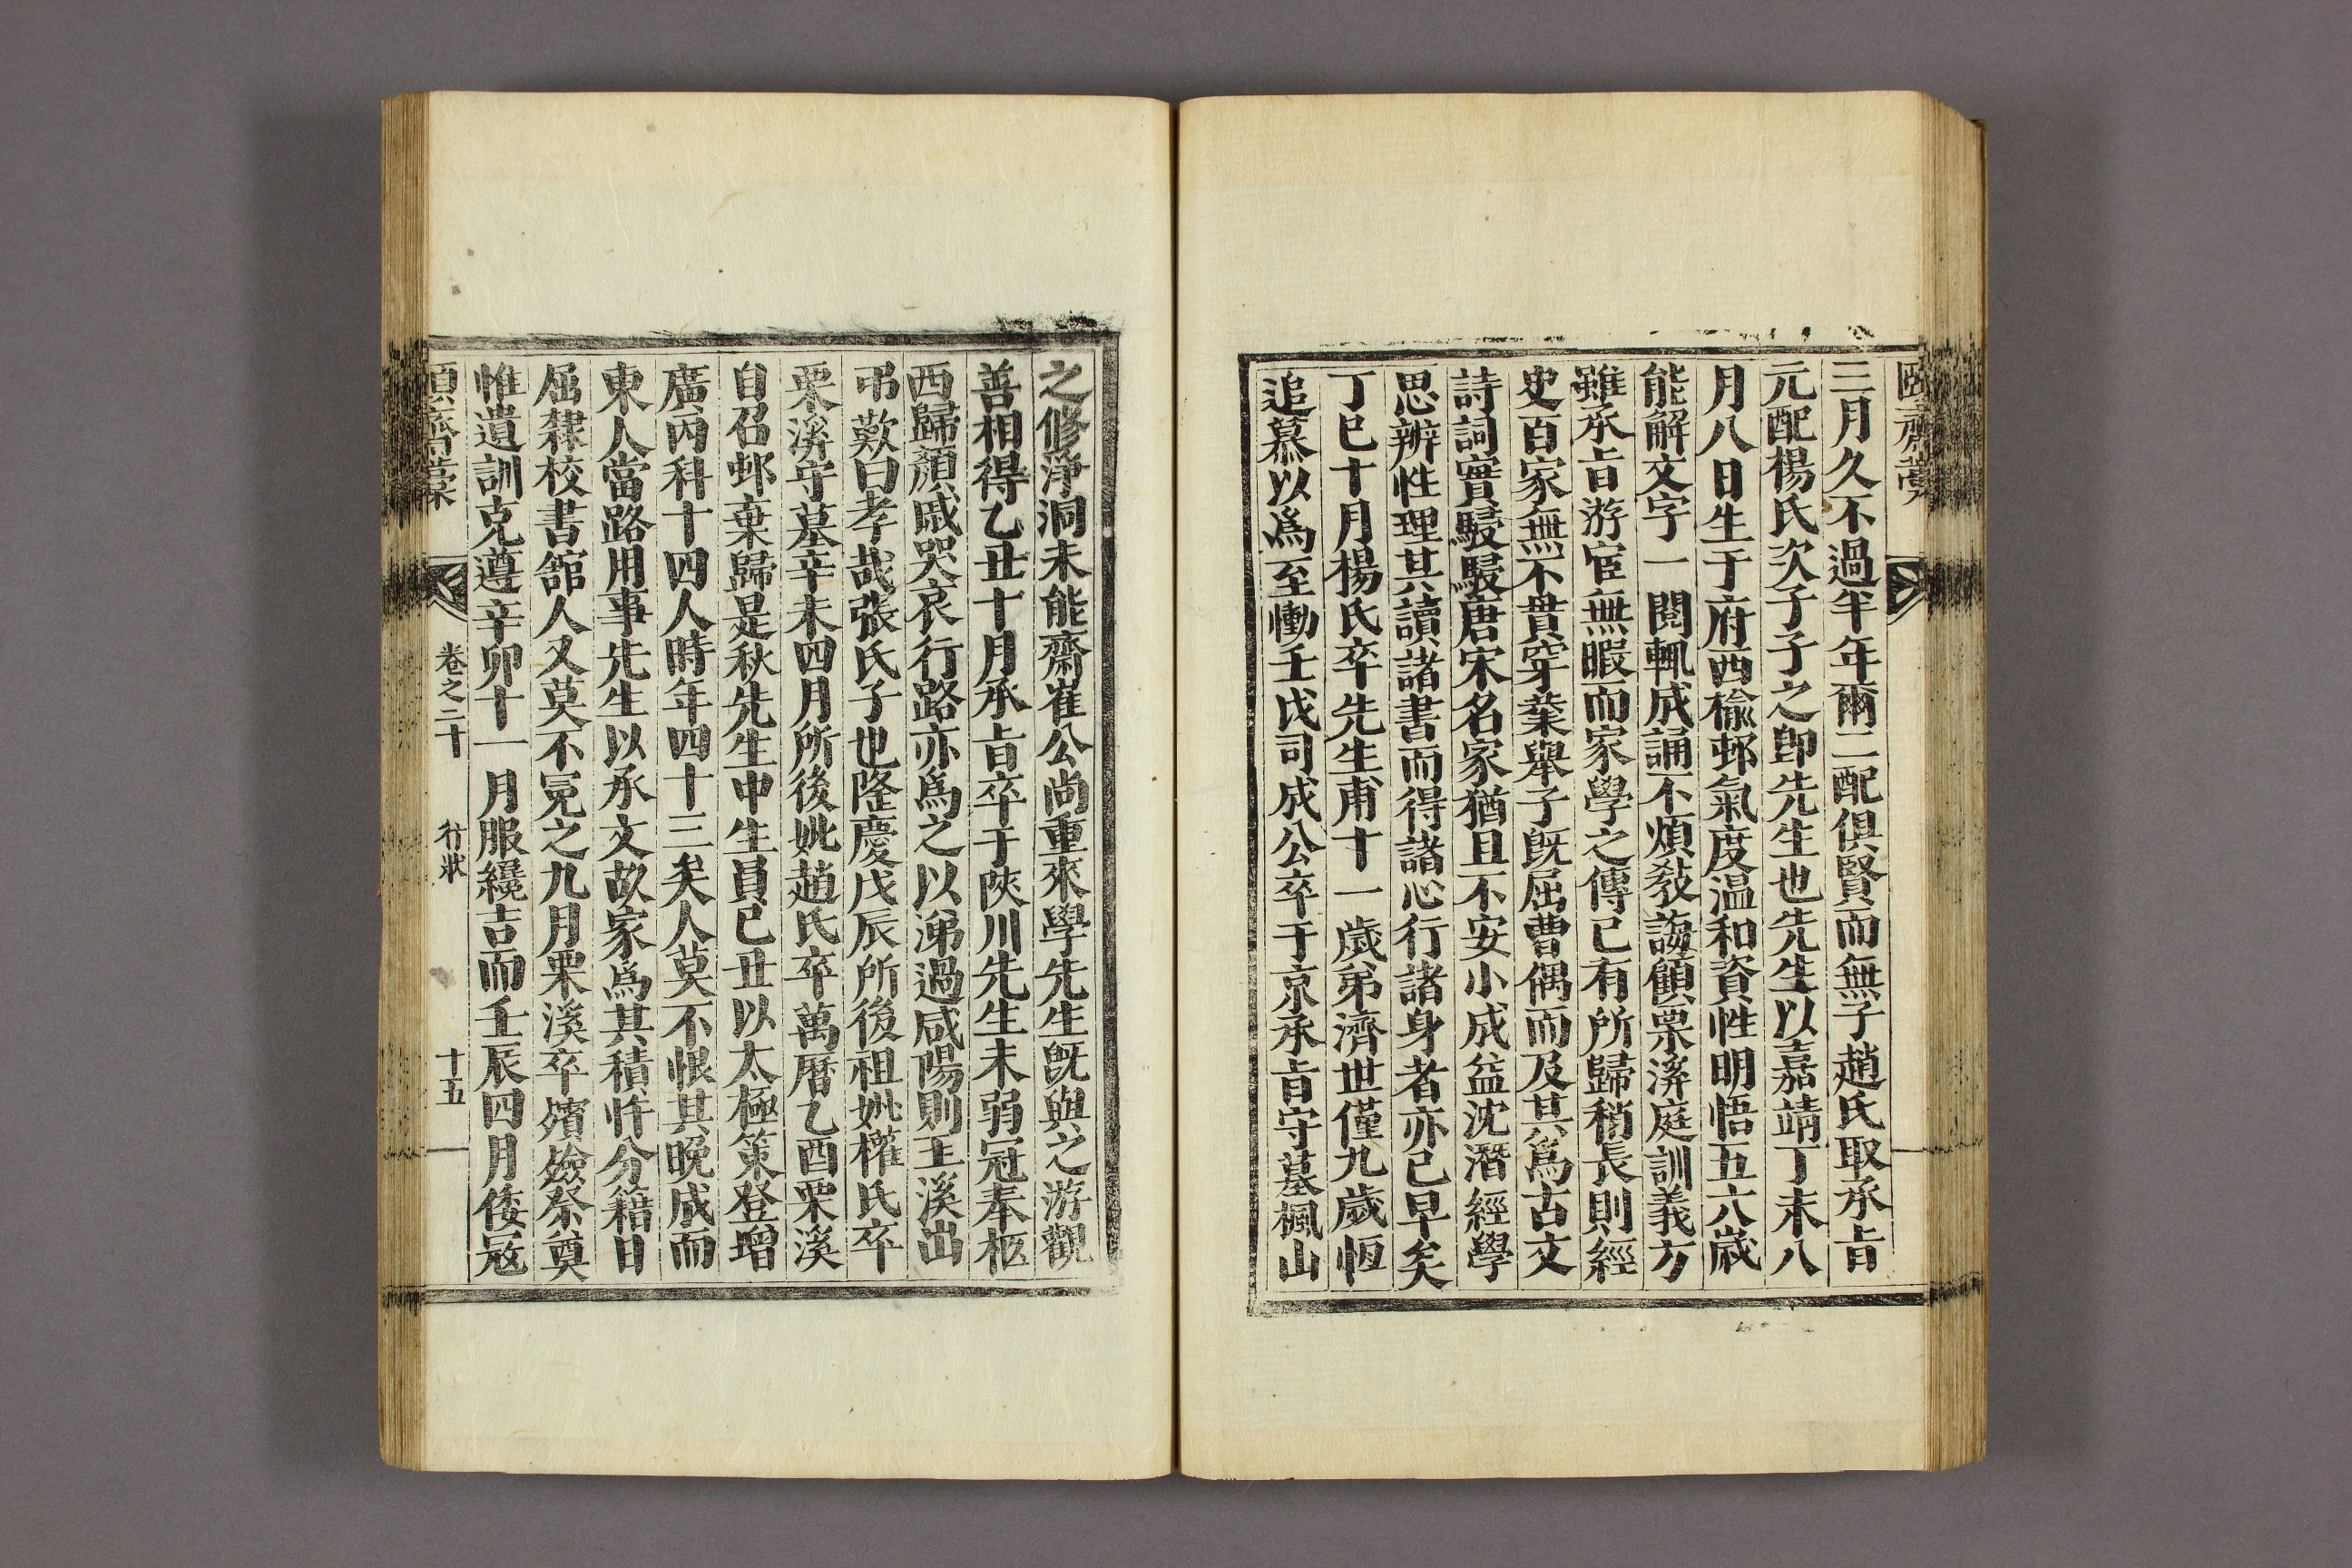 三月久不過半年爾二配俱賢而無子趙氏取承旨
元配楊氏次子子之卽先生也先生以嘉靖丁未八
月八日生于府西楡邨氣度温和資性明悟五六歲
能解文字一閱輒成誦不煩敎誨顧栗溪庭訓義方
雖承旨游宦無暇而家學之傳已有所歸稍長則經
史百家無不貫穿業擧子旣屈曹偶而及其爲古文
詩詞實駸駸唐宋名家猶且不安小成益沈潛經學
思辨性理其讀諸書而得諸心行諸身者亦已早矣
丁巳十月楊氏卒先生甫十一歲弟濟世僅九歲恆
追慕以爲至慟壬戌司成公卒于京承旨守墓楓山
之修淨洞未能齋崔公尚重來學先生旣與之游觀
善相得乙丑十月承旨卒于陜川先生未弱冠奉柩
西歸顏戚哭哀行路亦爲之以涕過咸陽則玉溪出
弔歎曰孝哉張氏子也隆慶戊辰所後祖妣權氏卒
栗溪守墓辛未四月所後妣趙氏卒萬曆乙酉栗溪
自召邨棄歸是秋先生中生員已丑以太極策登增
廣丙科十四人時年四十三矣人莫不恨其晚成而
東人當路用事先生以承文故家爲其積忤分籍日
屈隸校書館人又莫不冤之九月栗溪卒殯斂祭奠
惟遺訓克遵辛卯十一月服纔吉而壬辰四月倭冦
卷之二十 行狀 十五